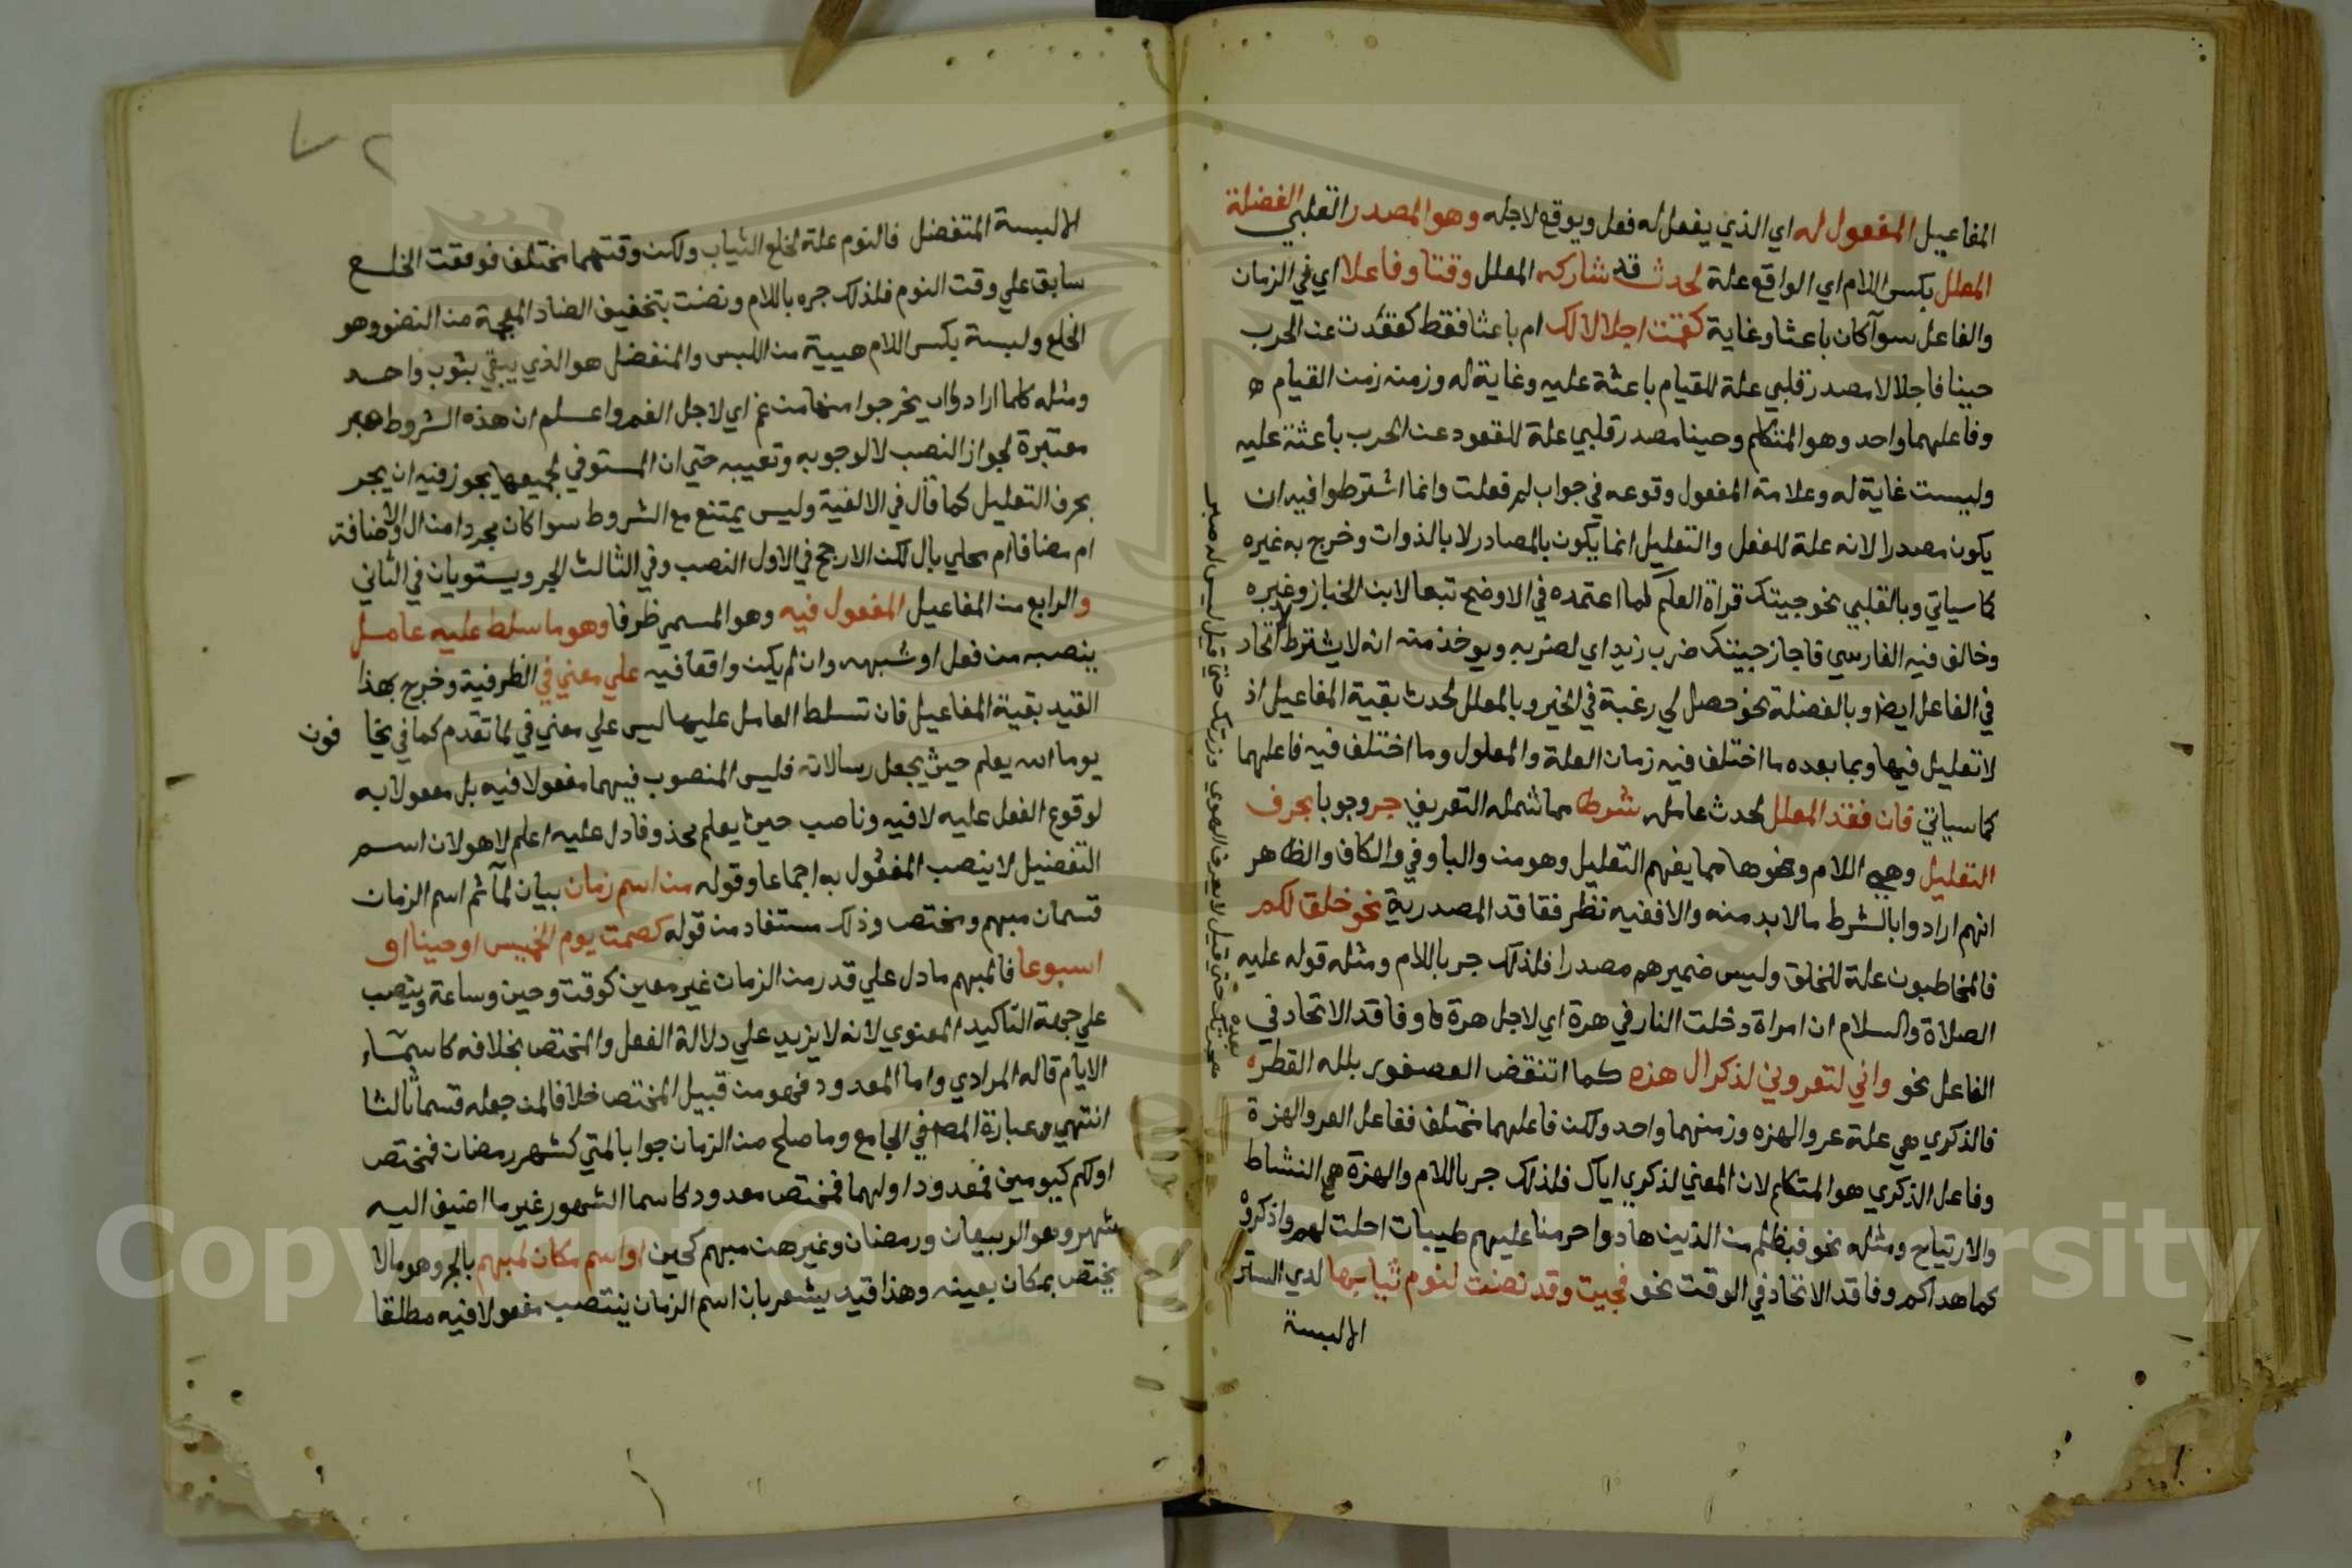 المفاعيل المفعول له اي الذي يفعل له فعل ويوقع لاجله وهو المصدر القلبي الفضلة
المعلل بكسر اللام اي الواقع علة لحدث قد شاركه المعلل وقتا وفاعلا اي في الزمان
والفاعل سوآ كان باعثا وغاية كقمت اجلالا لك ام باعثا فقط كقعدت عن الحرب
جبنا فاجلالا مصدر قلبي علة للقيام باعثة عليه وغاية له وزمنه زمن القيام
وفاعلهما واحد وهو المتكلم وجبنا مصدر قلبي علة للقعود عن الحرب باعثة عليه
وليست غاية له وعلامة المفعول وقوعه في جواب لم فعلت وانما اشترطوا فيه ان
يكون مصدرا لانه علة للفعل والتعليل انما يكون بالمصادر لا بالذوات وخرج به غيره
كما سياتي وبالقلبي نحو جيتك قراة العلم كما اعتمده في الاوضح تبعا لابن الخباز وغيره
وخالف فيه الفارسي فاجاز جيتك ضرب زيد اي لضربه ويوخذ منه انه لا يشترط اتحاد
في الفاعل ايضا وبالفضلة نحو حصل لي رغبة في الخير وبالمعلل لحدث بقية المفاعيل اذ
لا تعليل فيها وبما بعده ما اختلف فيه زمان العلة والمعلول وما اختلف فيه فاعلهما
كما سياتي فان فقد المعلل لحدث عامله شرطا مما شمله التعريف جر وجوبا بحرف
التعليل وهي اللام ونحوها مما يفهم التعليل وهو من والبا وفي والكاف والظاهر
انهم ارادوا بالشرط ما لا بد منه والا ففيه نظر ففاقد المصدرية نحو خلق لكم
فالمخاطبون علة للخلق وليس ضميرهم مصدرا فلذلك جر باللام ومثله قوله عليه
الصلاة والسلام ان امراة دخلت النار في هرة اي لاجل هرة وفاقد الاتحاد في
الفاعل نحو واني لتعروني لذكراك هزه كما انتفض العصفور بلله القطر
فالذكري هي علة عرو الهزه وزمنهما واحد ولكن فاعلهما مختلف ففاعل العرو الهزة
وفاعل الذكري هو المتكلم لان المعني لذكري اياك فلذلك جر باللام والهزة هي النشاط
والارتياح ومثله نحو فبظلم من الذين هادوا حرمنا عليهم طيبات احلت لهم واذكروه
كما هداكم وفاقد الاتحاد في الوقت نحو فجيت وقد نضت لنوم ثيابها لدي الستر
الا لبسة
الا لبسة المتفضل فالنوم علة لخلع الثياب ولكن وقتهما مختلف فوقت الخلع
سابق علي وقت النوم فلذلك جره باللام ونضت بتخفيف الضاد المعجمة من النضو وهو
الخلع ولبسة بكسر اللام هيية من اللبس والمتفضل هو الذي يبقي بثوب واحد
ومثله كلما ارادوا ان يخرجوا منها من غم اي لاجل الغم واعلم ان هذه الشروط
معتبرة لجواز النصب لا لوجوبه وتعيينه حتي ان المستوفي لجميعها يجوز فيه ان يجر
بحرف التعليل كما قال في الالفية وليس يمتنع مع الشروط سوا كان مجردا من ال والاضافة
ام مضافا ام محلي بال لكن الارجح في الاول النصب وفي الثالث الجر ويستويان في الثاني
والرابع من المفاعيل المفعول فيه وهو المسمي ظرفا وهو ما سلط عليه عامل
ينصبه من فعل او شبهه وان لم يكن واقعا فيه علي معني في الظرفية وخرج بهذا
القيد بقية المفاعيل فان تسلط العامل عليها ليس علي معني في لما تقدم كما في يخا فون
يوما الله يعلم حيث يجعل رسالاته فليس المنصوب فيهما مفعولا فيه بل مفعولا به
لوقوع الفعل عليه لا فيه وناصب حيث يعلم محذوفا دل عليه اعلم لا هو لان اسم
التفضيل لا ينصب المفعول به اجماعا وقوله من اسم زمان بيان لما ثم اسم الزمان
قسمان مبهم ومختص وذلك مستفاد من قوله كصمت يوم الخميس او حينا او
اسبوعا فالمبهم ما دل علي قدر من الزمان غير معين كوقت وحين وساعة وينصب
علي جهة التاكيد المعنوي لانه لا يزيد علي دلالة الفعل والمختص بخلافه كاسمآء
الايام قاله المرادي واما المعدود فهو من قبيل المختص خلافا لمن جعله قسما ثالثا
انتهي وعبارة المص في الجامع وما صلح من الزمان جوابا لمتي كشهر رمضان فمختص
او لكم كيومين فمعدود او لهما فمختص معدود كاسما الشهور غير ما اضيف اليه
شهر وهو الربيعان ورمضان وغيرهن مبهم كحين او اسم مكان مبهم بالجر وهو ما لا
يختص بمكان بعينه وهذا قيد يشعر بان اسم الزمان ينتصب مفعولا فيه مطلقا
Copyright © King Saud University